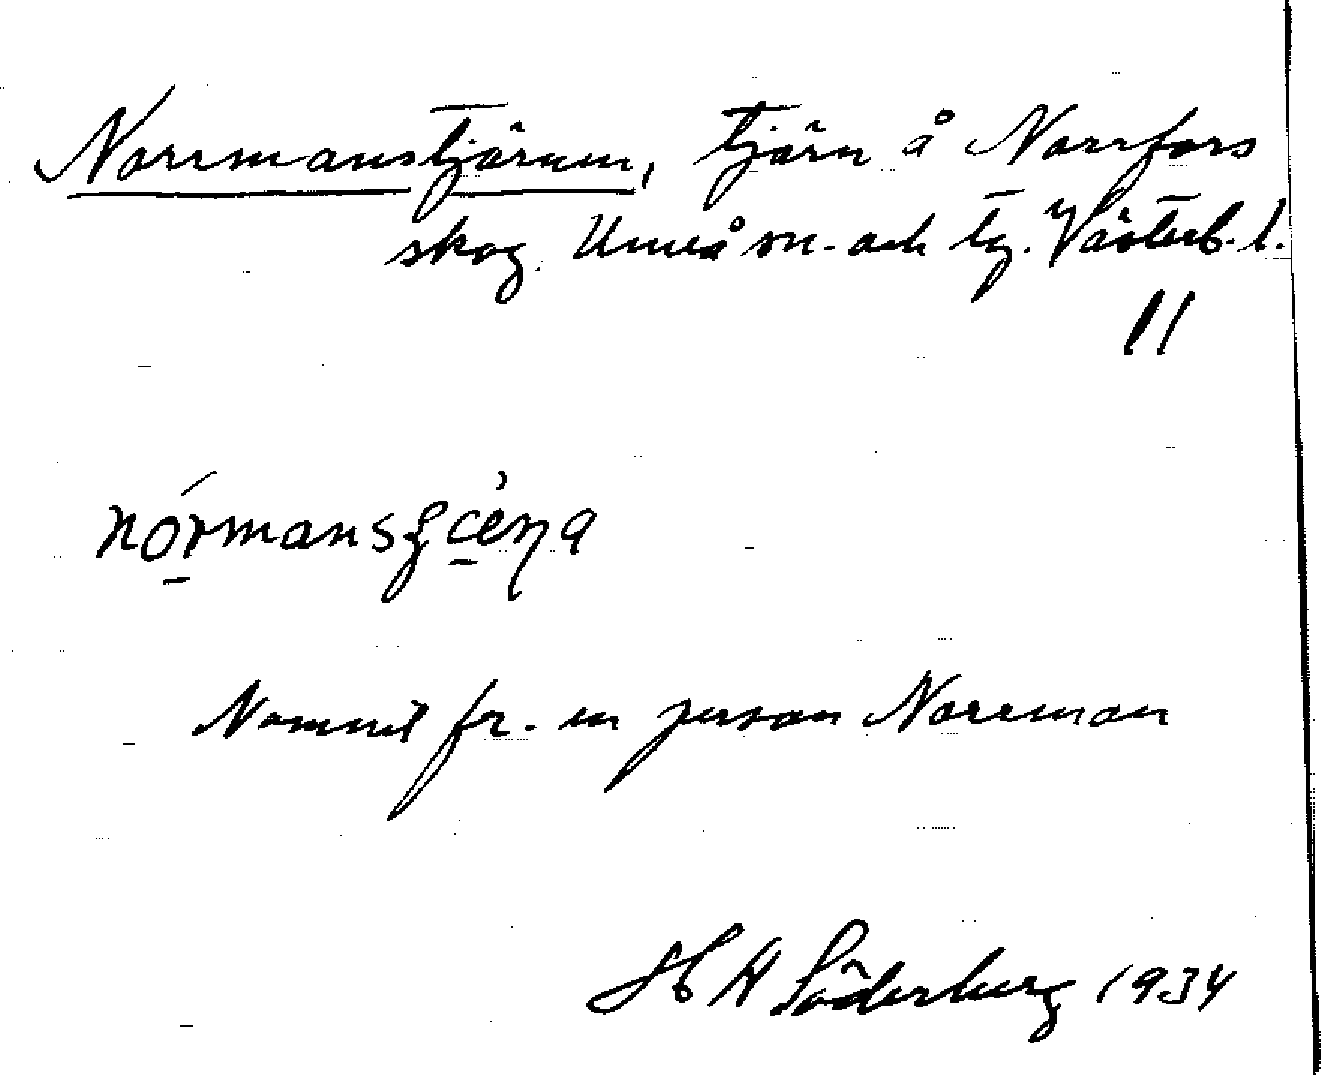 Norrmanstjärnen, tjärn å Norrfors
skog. Umeå sn. och tg. Västerb. l.
11
Namnet fr. en person Norrman
H A Söderberg 1934